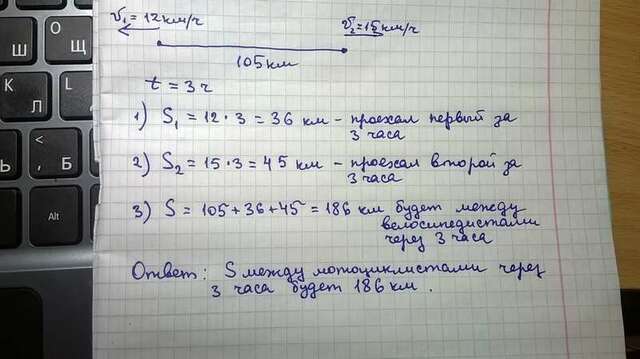 Ш
О
Щ
К
Л
Л
Д
<
,
Б
Alt
V₁ = 12 км/ч
V₂ = 15 км/ч
105 км
t = 3 ч
1) S₁ = 12 · 3 = 36 км – проехал первый за
3 часа
2) S₂ = 15 · 3 = 45 км – проехал второй за
3 часа
3) S = 105 + 36 + 45 = 186 км будет между
велосипедистами
через 3 часа
Ответ: S между мотоциклистами через
3 часа будет 186 км.